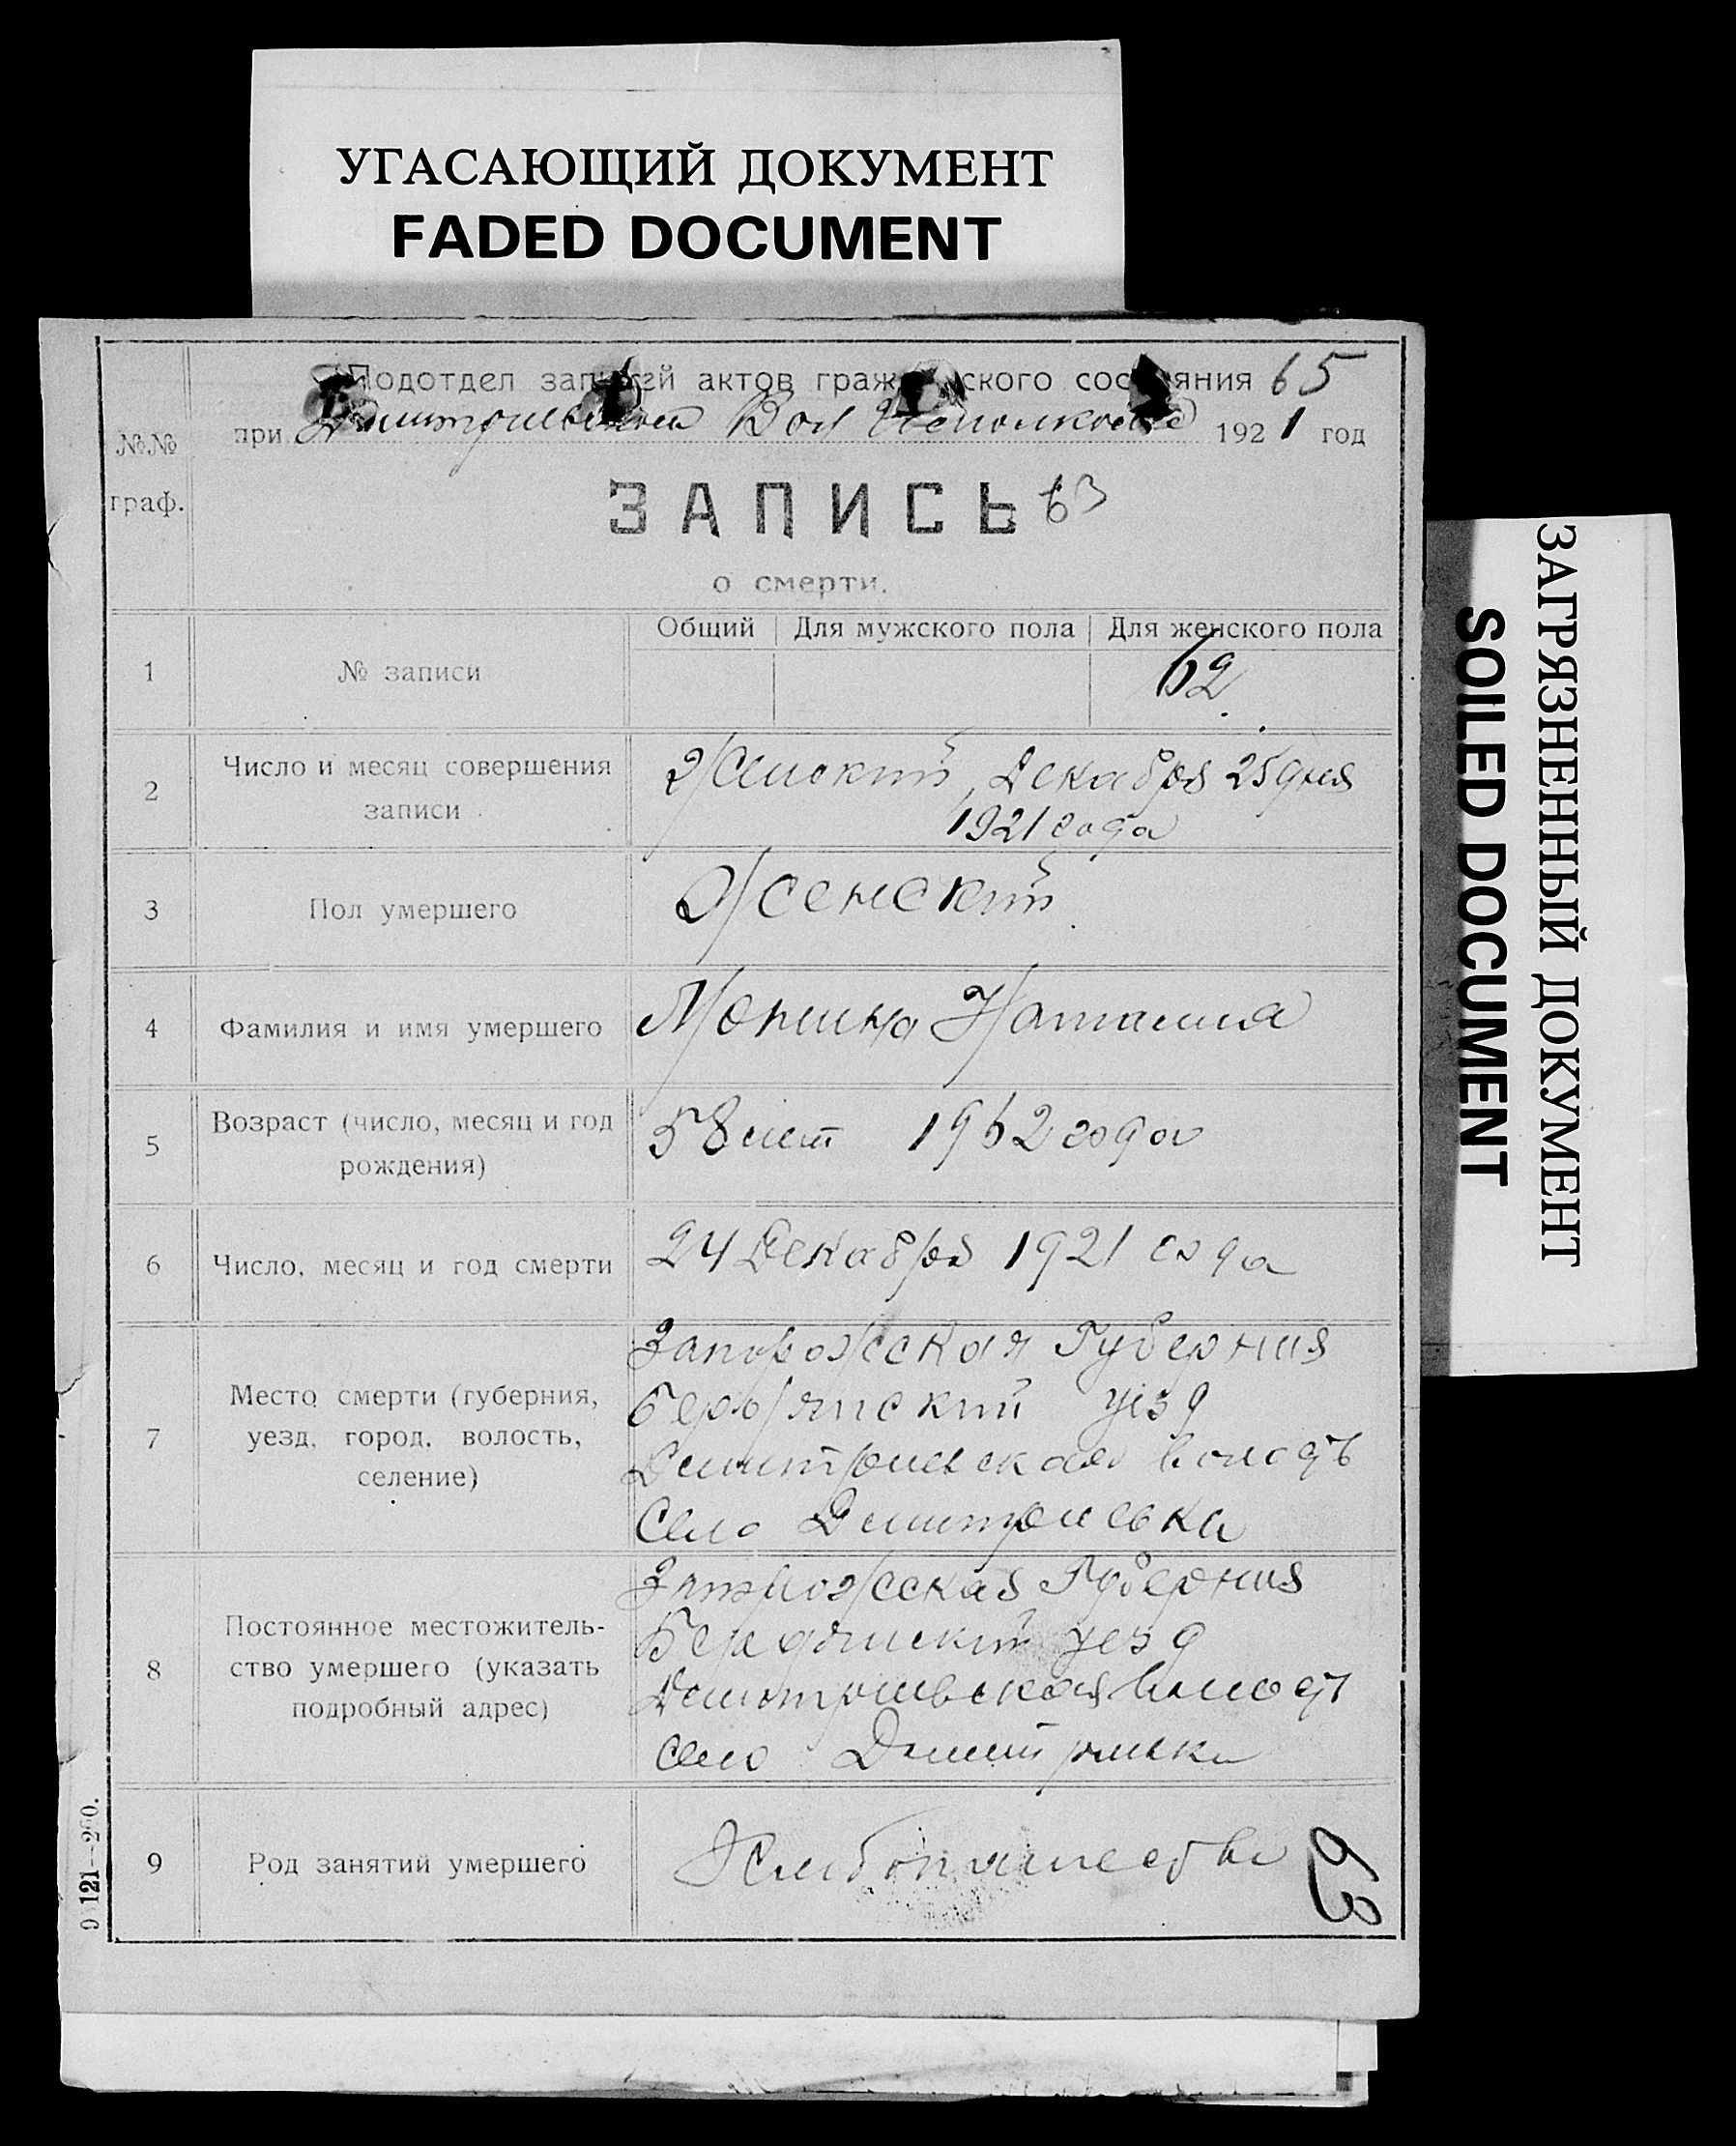 УГАСАЮЩИЙ ДОКУМЕНТ
FADED DOCUMENT
Подотдел записей актов гражданского состояния 65
при Дмитриевском Вол Исполкоме 1921 год
№№
граф.
ЗАПИСЬ 63
о смерти.
Общий Для мужского пола Для женского пола
1 № записи 62
2 Число и месяц совершения
записи
Женский Декабря 25 дня
1921 года
3 Пол умершего Женский
4 Фамилия и имя умершего Наталия
5 Возраст (число, месяц и год
рождения)
58 лет 1962 года
6 Число, месяц и год смерти 24 Декабря 1921 года
7 Место смерти (губерния,
уезд, город, волость,
селение)
Запорожская Губерния
Бердянский уезд
Димитриевская волость
Село Димитриевка
8 Постоянное местожитель-
ство умершего (указать
подробный адрес)
Запорожская Губерния
Бердянский уезд
Димитриевская
село Димитриевка
9 Род занятий умершего 63
ЗАГРЯЗНЕННЫЙ ДОКУМЕНТ
SOILED DOCUMENT